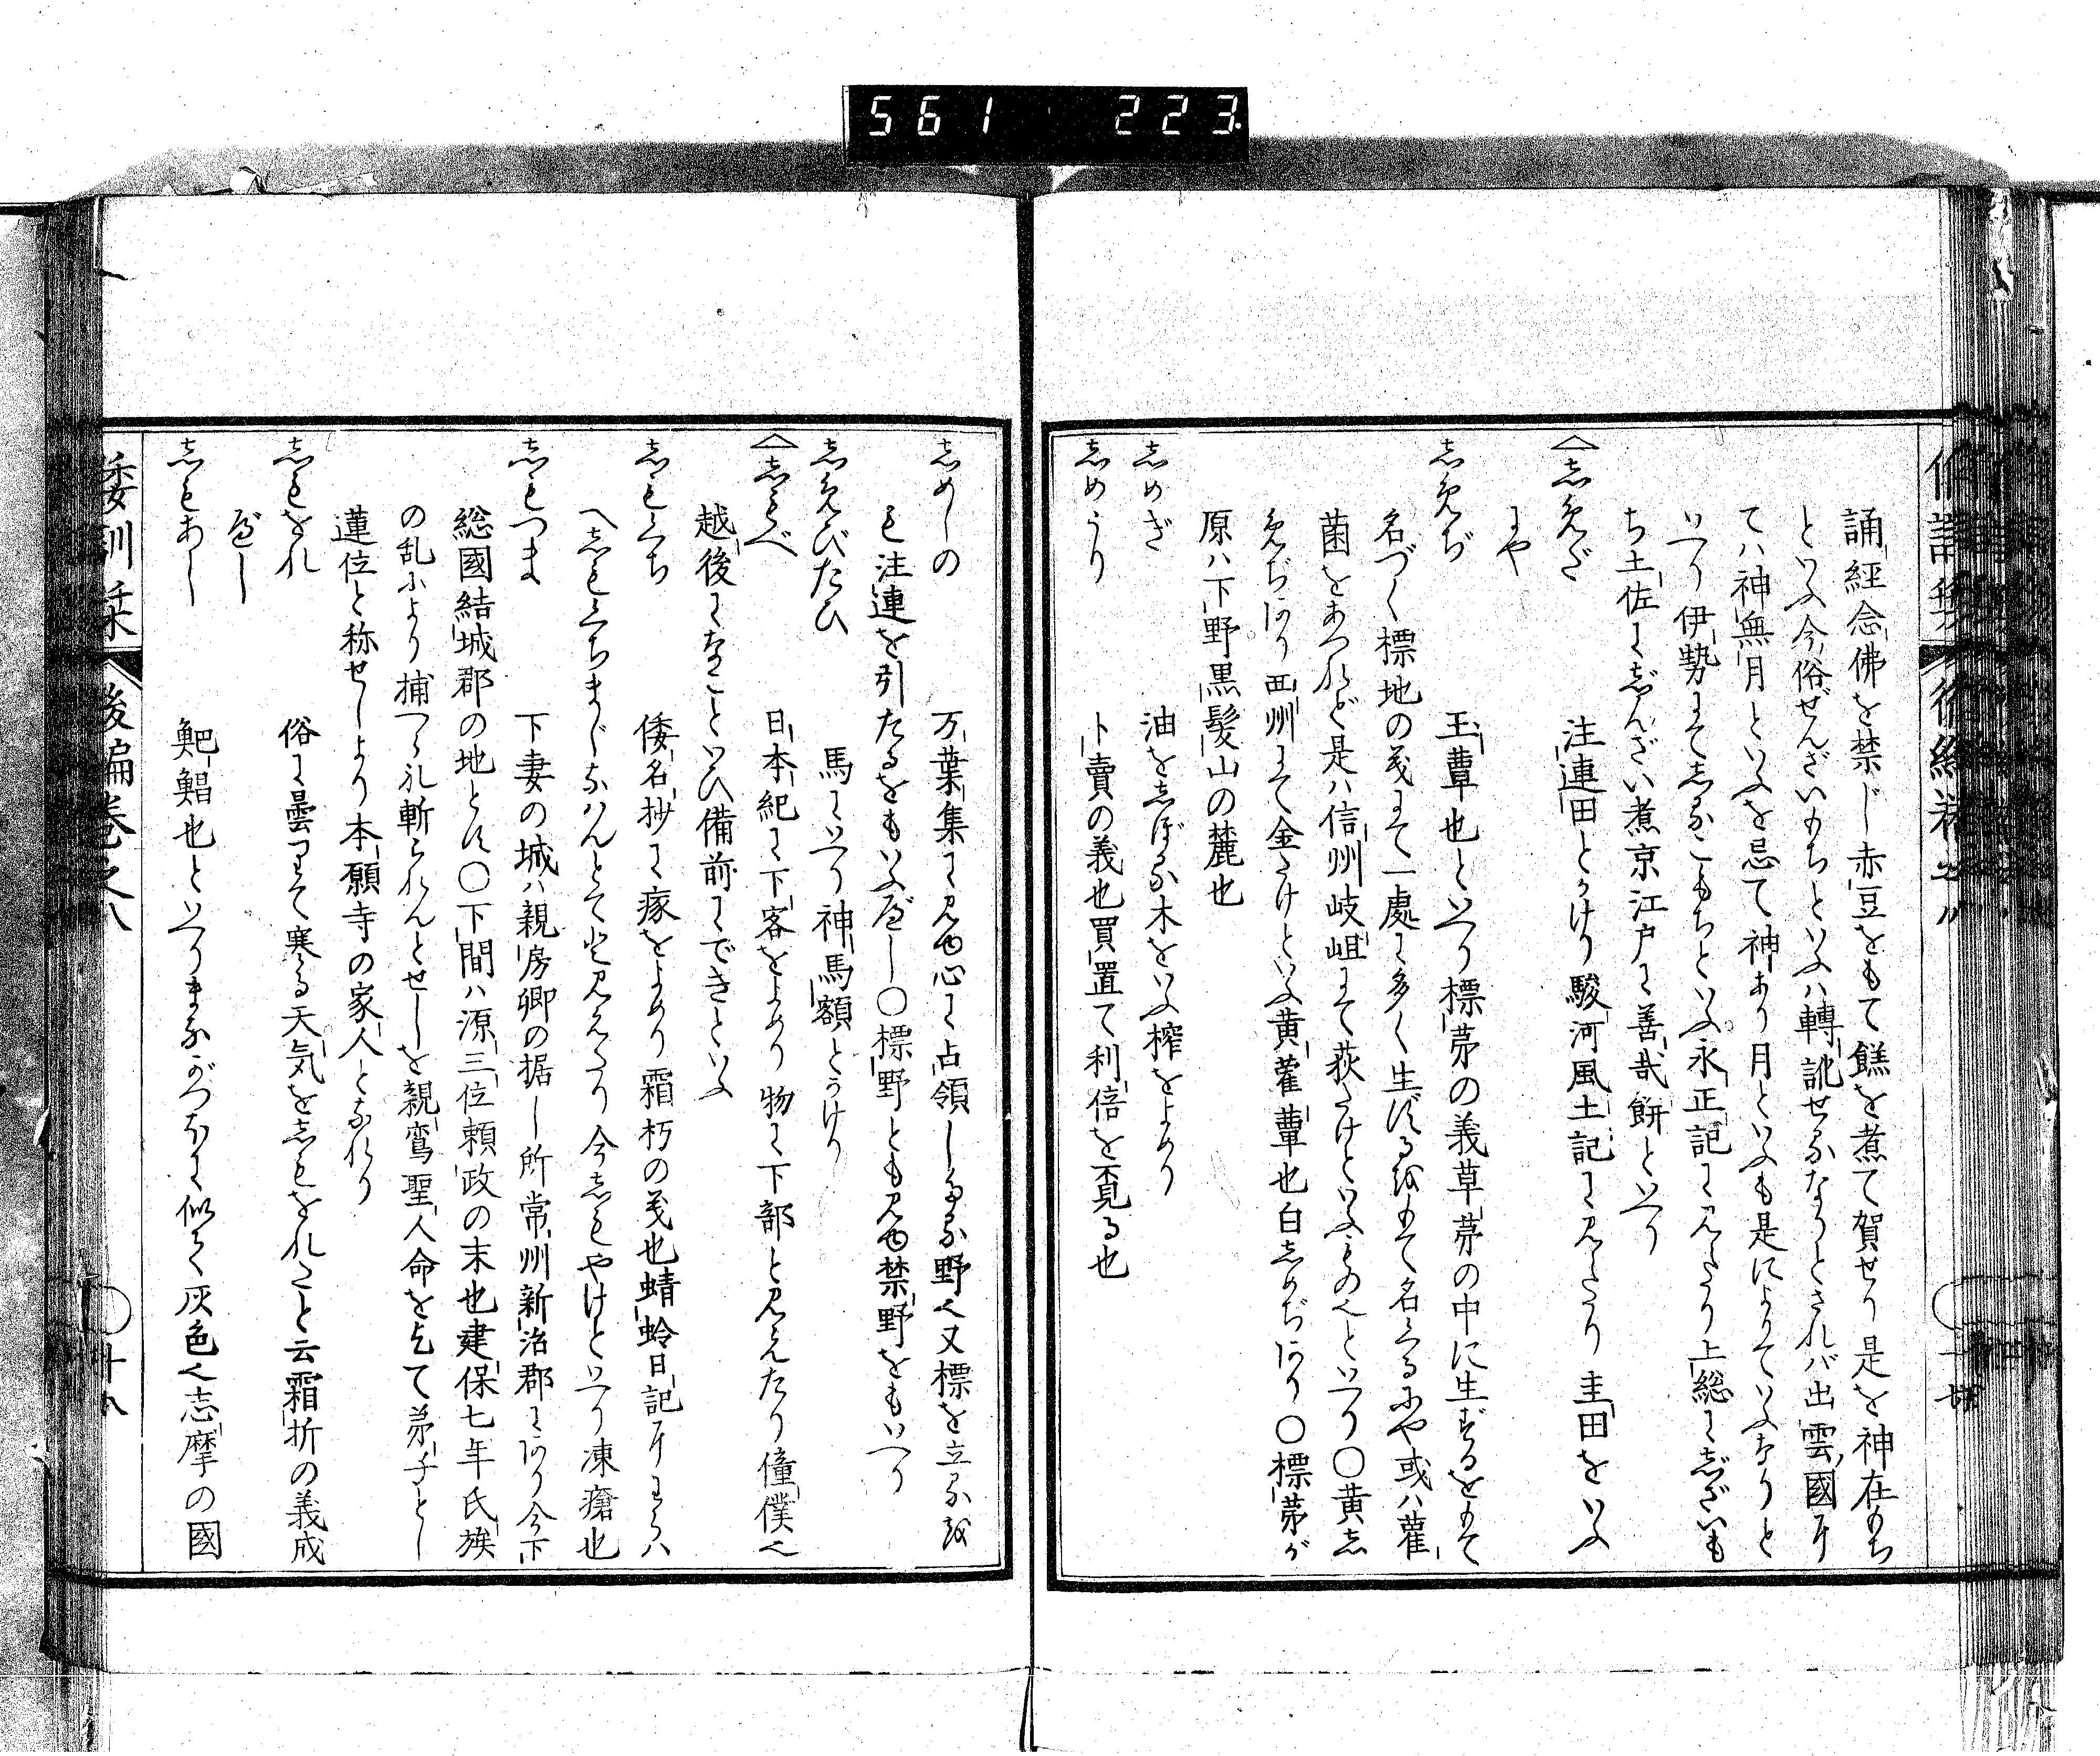 561 223
誦経念佛を禁じ赤豆をもて餻を煮て賀せり是を神在もち
といふ今俗ぜんざいもちといふハ轉訛せるなりとされバ出雲國に
てハ神無月といふを忌て神あり月といふも是によりていふなりと
いへり伊勢にてしるこもちといふ永正記に見えたり上総にじざいも
ち土佐にじんざい煮京江戸に善哉餅といへり
しめだ 注連田とかけり駿河風土記に見えたり圭田をいふ
にや
しめぢ 玉蕈也といへり標茅の義草茅の中に生ずるをもて
名づく標地の義にて一處に多く生ずる故もて名くるにや或ハ藿
菌をあつれど是ハ信州岐岨にて荻たけといふものへといへり○黄し
めぢあり西州にて金たけといふ黄藿蕈也白しめぢあり○標茅が
原ハ下野黒髪山の麓也
しめぎ 油をしぼる木をいふ搾をよめり
しめうり 卜賣の義也買置て利倍を覓る也
しめしの 万葉集に見ゆ心に占領したる野へ又標を立る故
も注連を引たるをもいふべし○標野とも見ゆ禁野をもいへり
しめびたひ 馬にいへり神馬額とかけり
しもべ 日本紀に下客をよめり物に下部と見えたり僮僕へ
越後になごといひ備前にできといふ
しもくち 倭名抄に瘃をよめり霜朽の義也蜻蛉日記にわらハ
へしもくちまじなハんとてと見えたり今しもやけといへり凍瘡也
しもつま 下妻の城ハ親房卿の据し所常州新治郡にあり今下
総國結城郡の地とす○下間ハ源三位頼政の末也建保七年氏族
の乱により捕へられ斬られんとせしを親鸞聖人命を乞て弟子とし
蓮位と称せしより本願寺の家人となれり
しもをれ 俗に曇りて寒る天気をしもをれたと云霜折の義成
べし
しもあし 䰾鯧也といへりまながつをに似て灰色へ志摩の國
倭訓栞 後編巻之八 ○十九